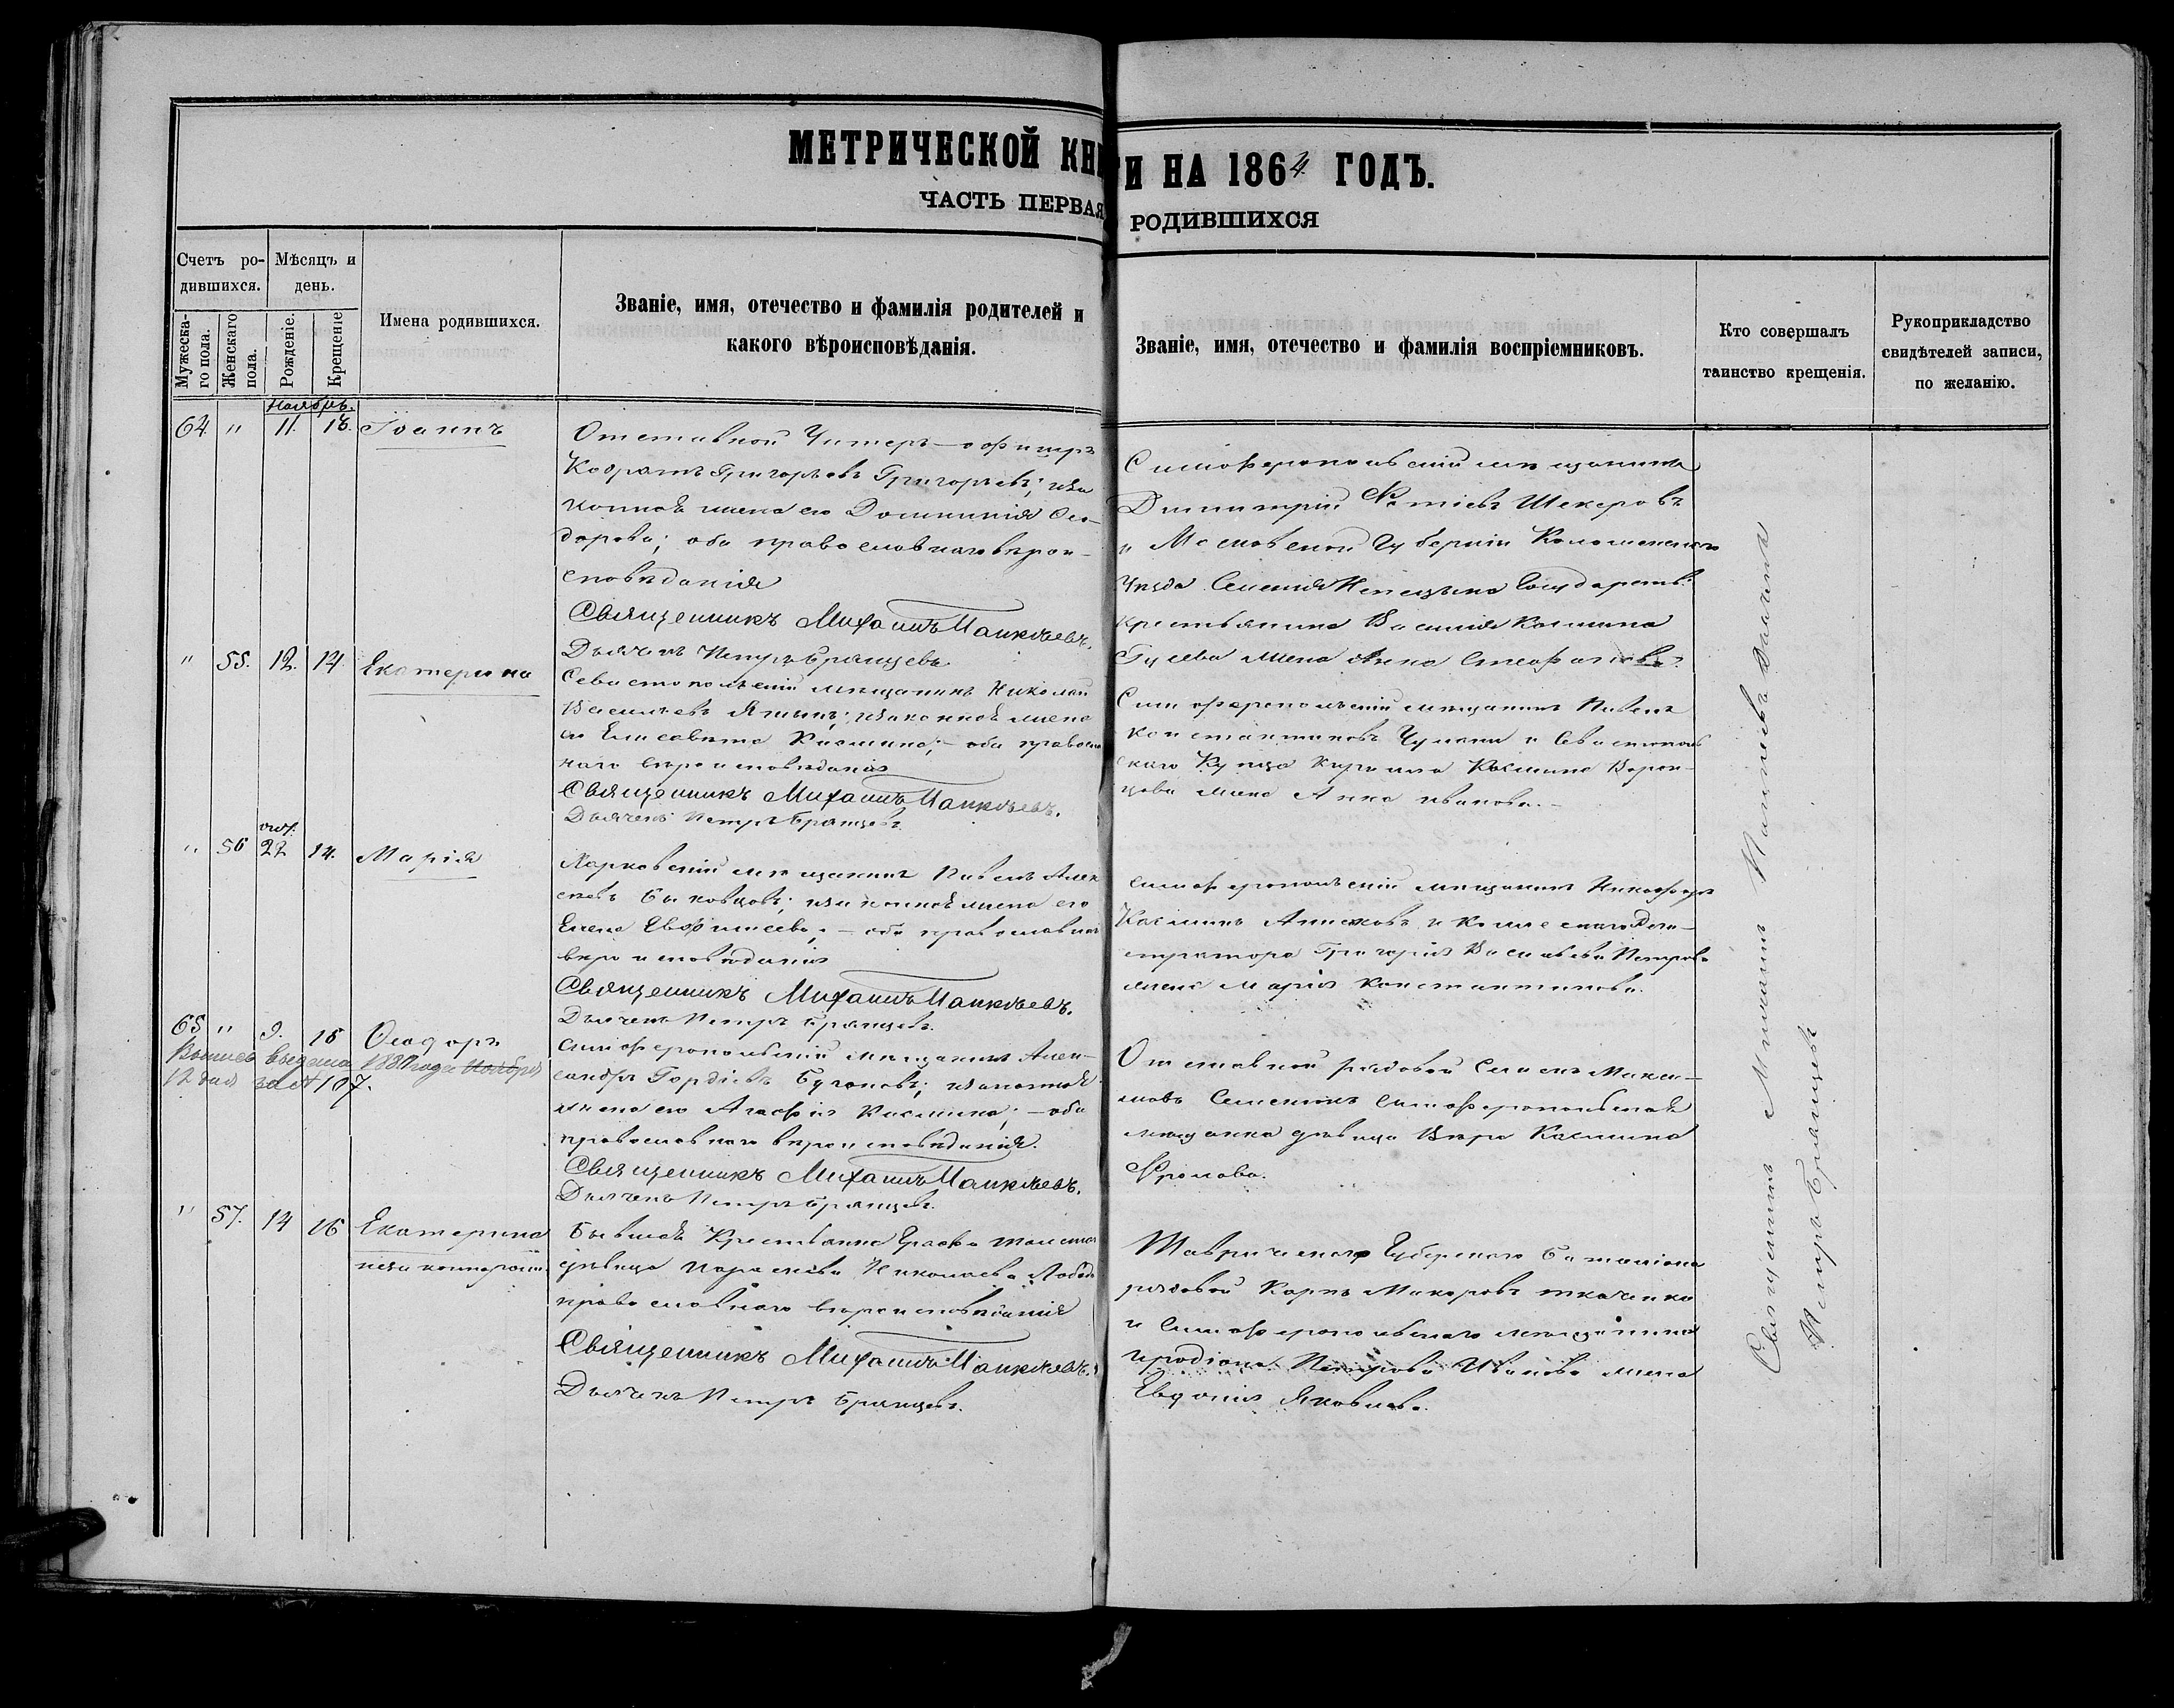 МЕТРИЧЕСКОЙ КНИГИ НА 1864 ГОДЪ.
ЧАСТЬ ПЕРВАЯ РОДИВШИХСЯ
Счетъ ро-
дившихся.
Мѣсяцъ и
день.
Мужеска-
го пола.
Женскаго
пола.
Рожденіе.
Крещеніе
Имена родившихся.
Званіе, имя, отечество и фамилія родителей и
какого вѣроисповѣданія.
Званіе, имя, отечество и фамилія воспріемниковъ.
Кто совершалъ
таинство крещенія.
Рукоприкладство
свидѣтелей записи,
по желанію.
Ноябрь.
64 " 11. 13. Іоаннъ
Отставной Унтеръ-офицеръ
Кодратъ Григорьевъ Григорьевъ; зако
нная жена его Домникія Ѳео-
дорова; оба православнаго вѣрои-
сповѣданія
Священникъ Михаилъ
Дьячекъ Петръ Брянцевъ
Симферопольскій мѣщанинъ
Димитрій Фотіевъ Шекеровъ
и Московской Губерніи Коломенскаго
Уѣзда Государств.
крестьянина Василія Косьмина
Гусева жена Анна Стефанова.
" 55. 12. 14. Екатерина
Севастопольскій мѣщанинъ Николай
Васильевъ законная жена
его Елисавета Косьмина; оба правосла
наго вѣроисповѣданія
Священникъ Михаилъ
Дьячекъ Петръ Брянцевъ
Симферопольскій мѣщанинъ Павелъ
Константиновъ и Севастополь
скаго Купца Кирилла Косьмина Ворон-
цова жена Анна Иванова.
окт.
" 56 22 14. Марія
Харьковскій мѣщанинъ Павелъ Алек
сѣевъ Быковцовъ; законная жена его
Елена Евфимиева; оба православнаго
вѣроисповѣданія
Священникъ Михаилъ
Дьячекъ Петръ Брянцевъ.
Симферопольскій мѣщанинъ Никифоръ
Косьминъ и Коллежскаго Реги-
стратора Григорія Васильева Петрова
жена Марія Константинова.
65 " 9. 15 Ѳеодоръ
выдана 1880 года Ноября
12 дня за № 107.
Симферопольскій мѣщанинъ Алек-
сандръ Гордіевъ законная
жена его Агафія Косьмина; оба
православнаго вѣроисповѣданія.
Священникъ Михаилъ
Дьячекъ Петръ Брянцевъ.
Отставной рядовой Макси-
мовъ Симферопольская
мѣщанка дѣвица Вѣра Косьмина
Фролова.
" 57. 14 16 Екатерина
незаконнорожд.
Бывшая Крестьянка Графа
дѣвица Параскева Николаева
православнаго вѣроисповѣданія
Священникъ Михаилъ
Дьячекъ Петръ Брянцевъ.
Таврическаго Губернскаго Баталіона
рядовой Карпъ Макаровъ Ткаченко
и Симферопольскаго мѣщанина
Иродіона Петрова Иванова жена
Евдокія Яковлева.
Священникъ Михаилъ
Петръ Брянцевъ